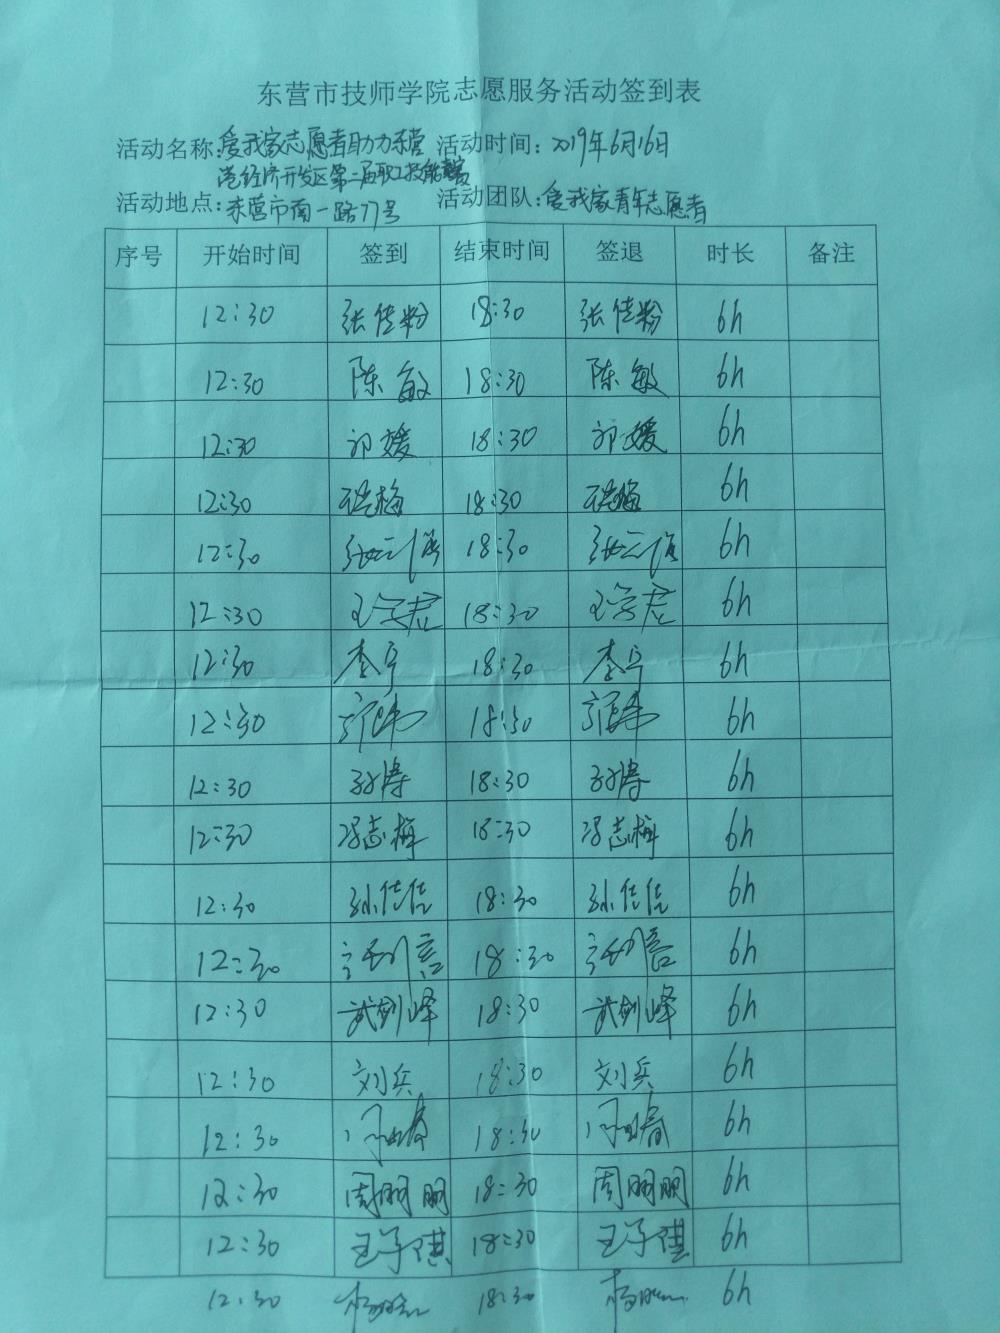 东营市技师学院志愿服务活动签到表
活动名称:爱我家志愿者助力东营 活动时间:2019年6月16日
港经济开发区第二届职工技能
活动地点:东营市南一路77号 活动团队:爱我家青年志愿者
序号 开始时间 签到 结束时间 签退 时长 备注
12:30 张佳粉 18:30 张佳粉 6h
12:30 陈敏 18:30 陈敏 6h
12:30 媛 18:30 媛 6h
12:30 梅 18:30 梅 6h
12:30 张云 18:30 张云 6h
12:30 王学君 18:30 王学君 6h
12:30 李宁 18:30 李宁 6h
12:30 18:30 6h
12:30 孙涛 18:30 孙涛 6h
12:30 冯志梅 18:30 冯志梅 6h
12:30 孙佳佳 18:30 孙佳佳 6h
12:30 18:30 6h
12:30 武剑峰 18:30 武剑峰 6h
12:30 刘兵 18:30 刘兵 6h
12:30 春 18:30 春 6h
12:30 周明明 18:30 周明明 6h
12:30 王子琪 18:30 王子琪 6h
12:30 杨 18:30 杨 6h